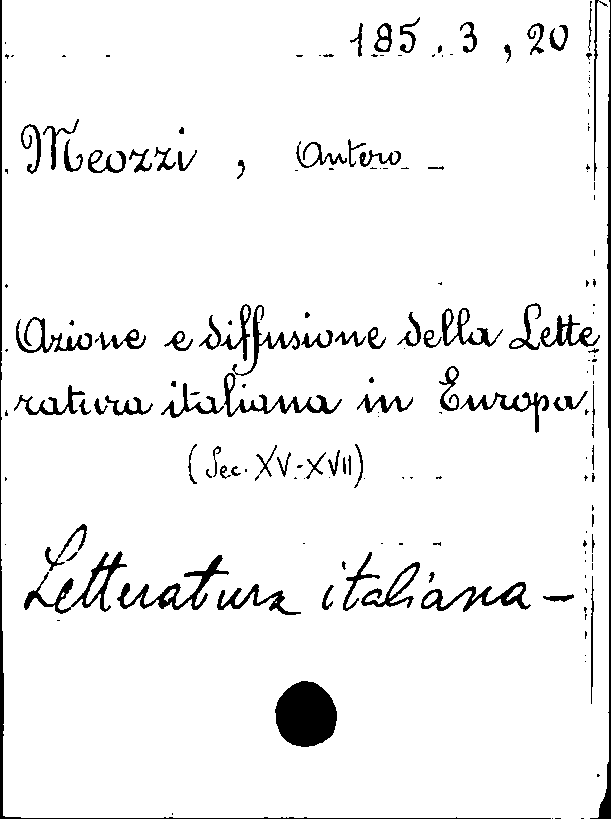 185.3,20
Meozzi, Antero
Azione e diffusione della Lette
ratura italiana in Europa
(Sec. XV-XVII)
Letteratura italiana -